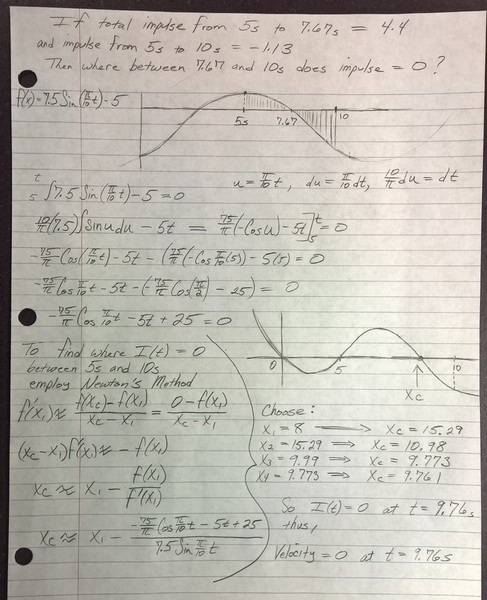 If total impulse from 5s to 7.67s = 4.4
and impulse from 5s to 10s = -1.13
Then where between 7.67 and 10s does impulse = 0?
f(t)=7.5 Sin(π/10 t) - 5
5s 7.67 10
u = π/10 t, du = π/10 dt, 10/π du = dt
t
5 ∫7.5 Sin(π/10 t) - 5 = 0
10/π(7.5)∫Sin u du - 5t = 75/π(-Cos u) - 5t]t5 = 0
-75/π Cos(π/10 t) - 5t - (75/π(-Cos π/10(5)) - 5(5) = 0
-75/π Cos π/10 t - 5t - (-75/π Cos(π/2) - 25) = 0
-75/π Cos π/10 t - 5t + 25 = 0
To find where I(t) = 0
between 5s and 10s
employ Newton's Method
f'(x1) ≈ f(xc) - f(x1)/xc - x1 = 0 - f(x1)/xc - x1
(xc - x1)f'(x1) ≈ - f(x1)
xc ≈ x1 - f(x1)/f'(x1)
xc ≈ x1 - -75/π Cos π/10 t - 5t + 25/7.5 Sin π/10 t
0 5 10
xc
Choose:
x1 = 8 → xc = 15.29
x2 = 15.29 ⇒ xc = 10.98
x3 = 9.99 ⇒ xc = 9.773
x4 = 9.773 ⇒ xc = 9.761
So I(t) = 0 at t = 9.76s
thus,
Velocity = 0 at t = 9.76s